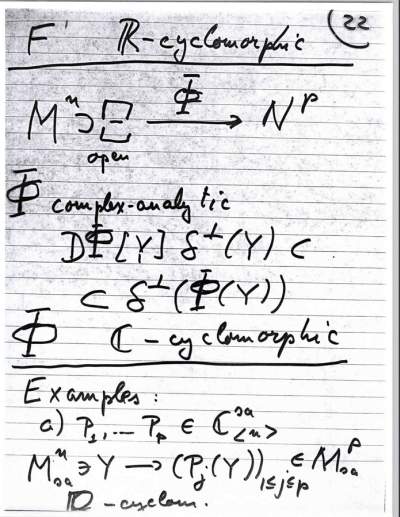 22
F ℝ-cyclomorphic
Mⁿ ⊃ ⊏⊐ —Φ→ Nᵖ
open
Φ complex-analytic
DΦ[Y] δ^⊥(Y) ⊂
⊂ δ^⊥(Φ(Y))
Φ ℂ-cyclomorphic
Examples:
a) P₁,... Pₚ ∈ ℂ^{sa}_{<n>}
Mⁿ_{sa} ∋ Y → (Pⱼ(Y))_{1≤j≤p} ∈ Mᵖ_{sa}
ℝ-cyclom.